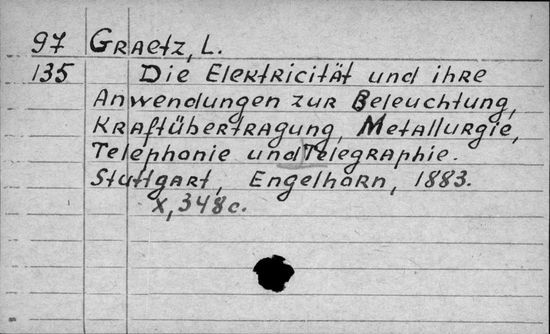 97 Graetz, L.
135 Die Elektricität und ihre
Anwendungen zur Beleuchtung,
Kraftübertragung, Metallurgie,
Telephonie und Telegraphie.
Stuttgart, Engelharn, 1883.
X, 348 c.